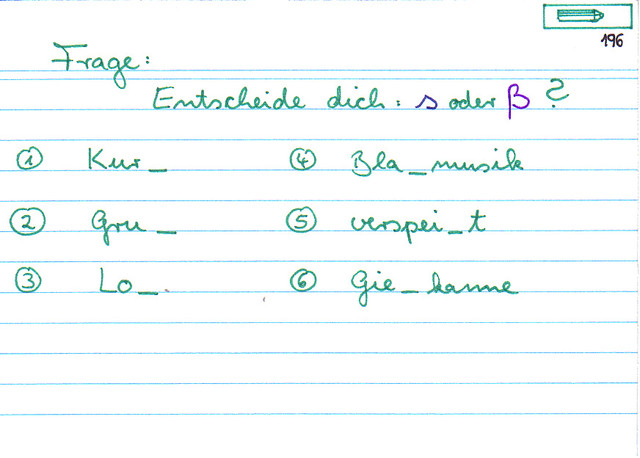 196
Frage:
Entscheide dich: s oder β ?
① Kur_ ④ Bla_musik
② Gru_ ⑤ verspei_t
③ Lo_. ⑥ Gie_kanne